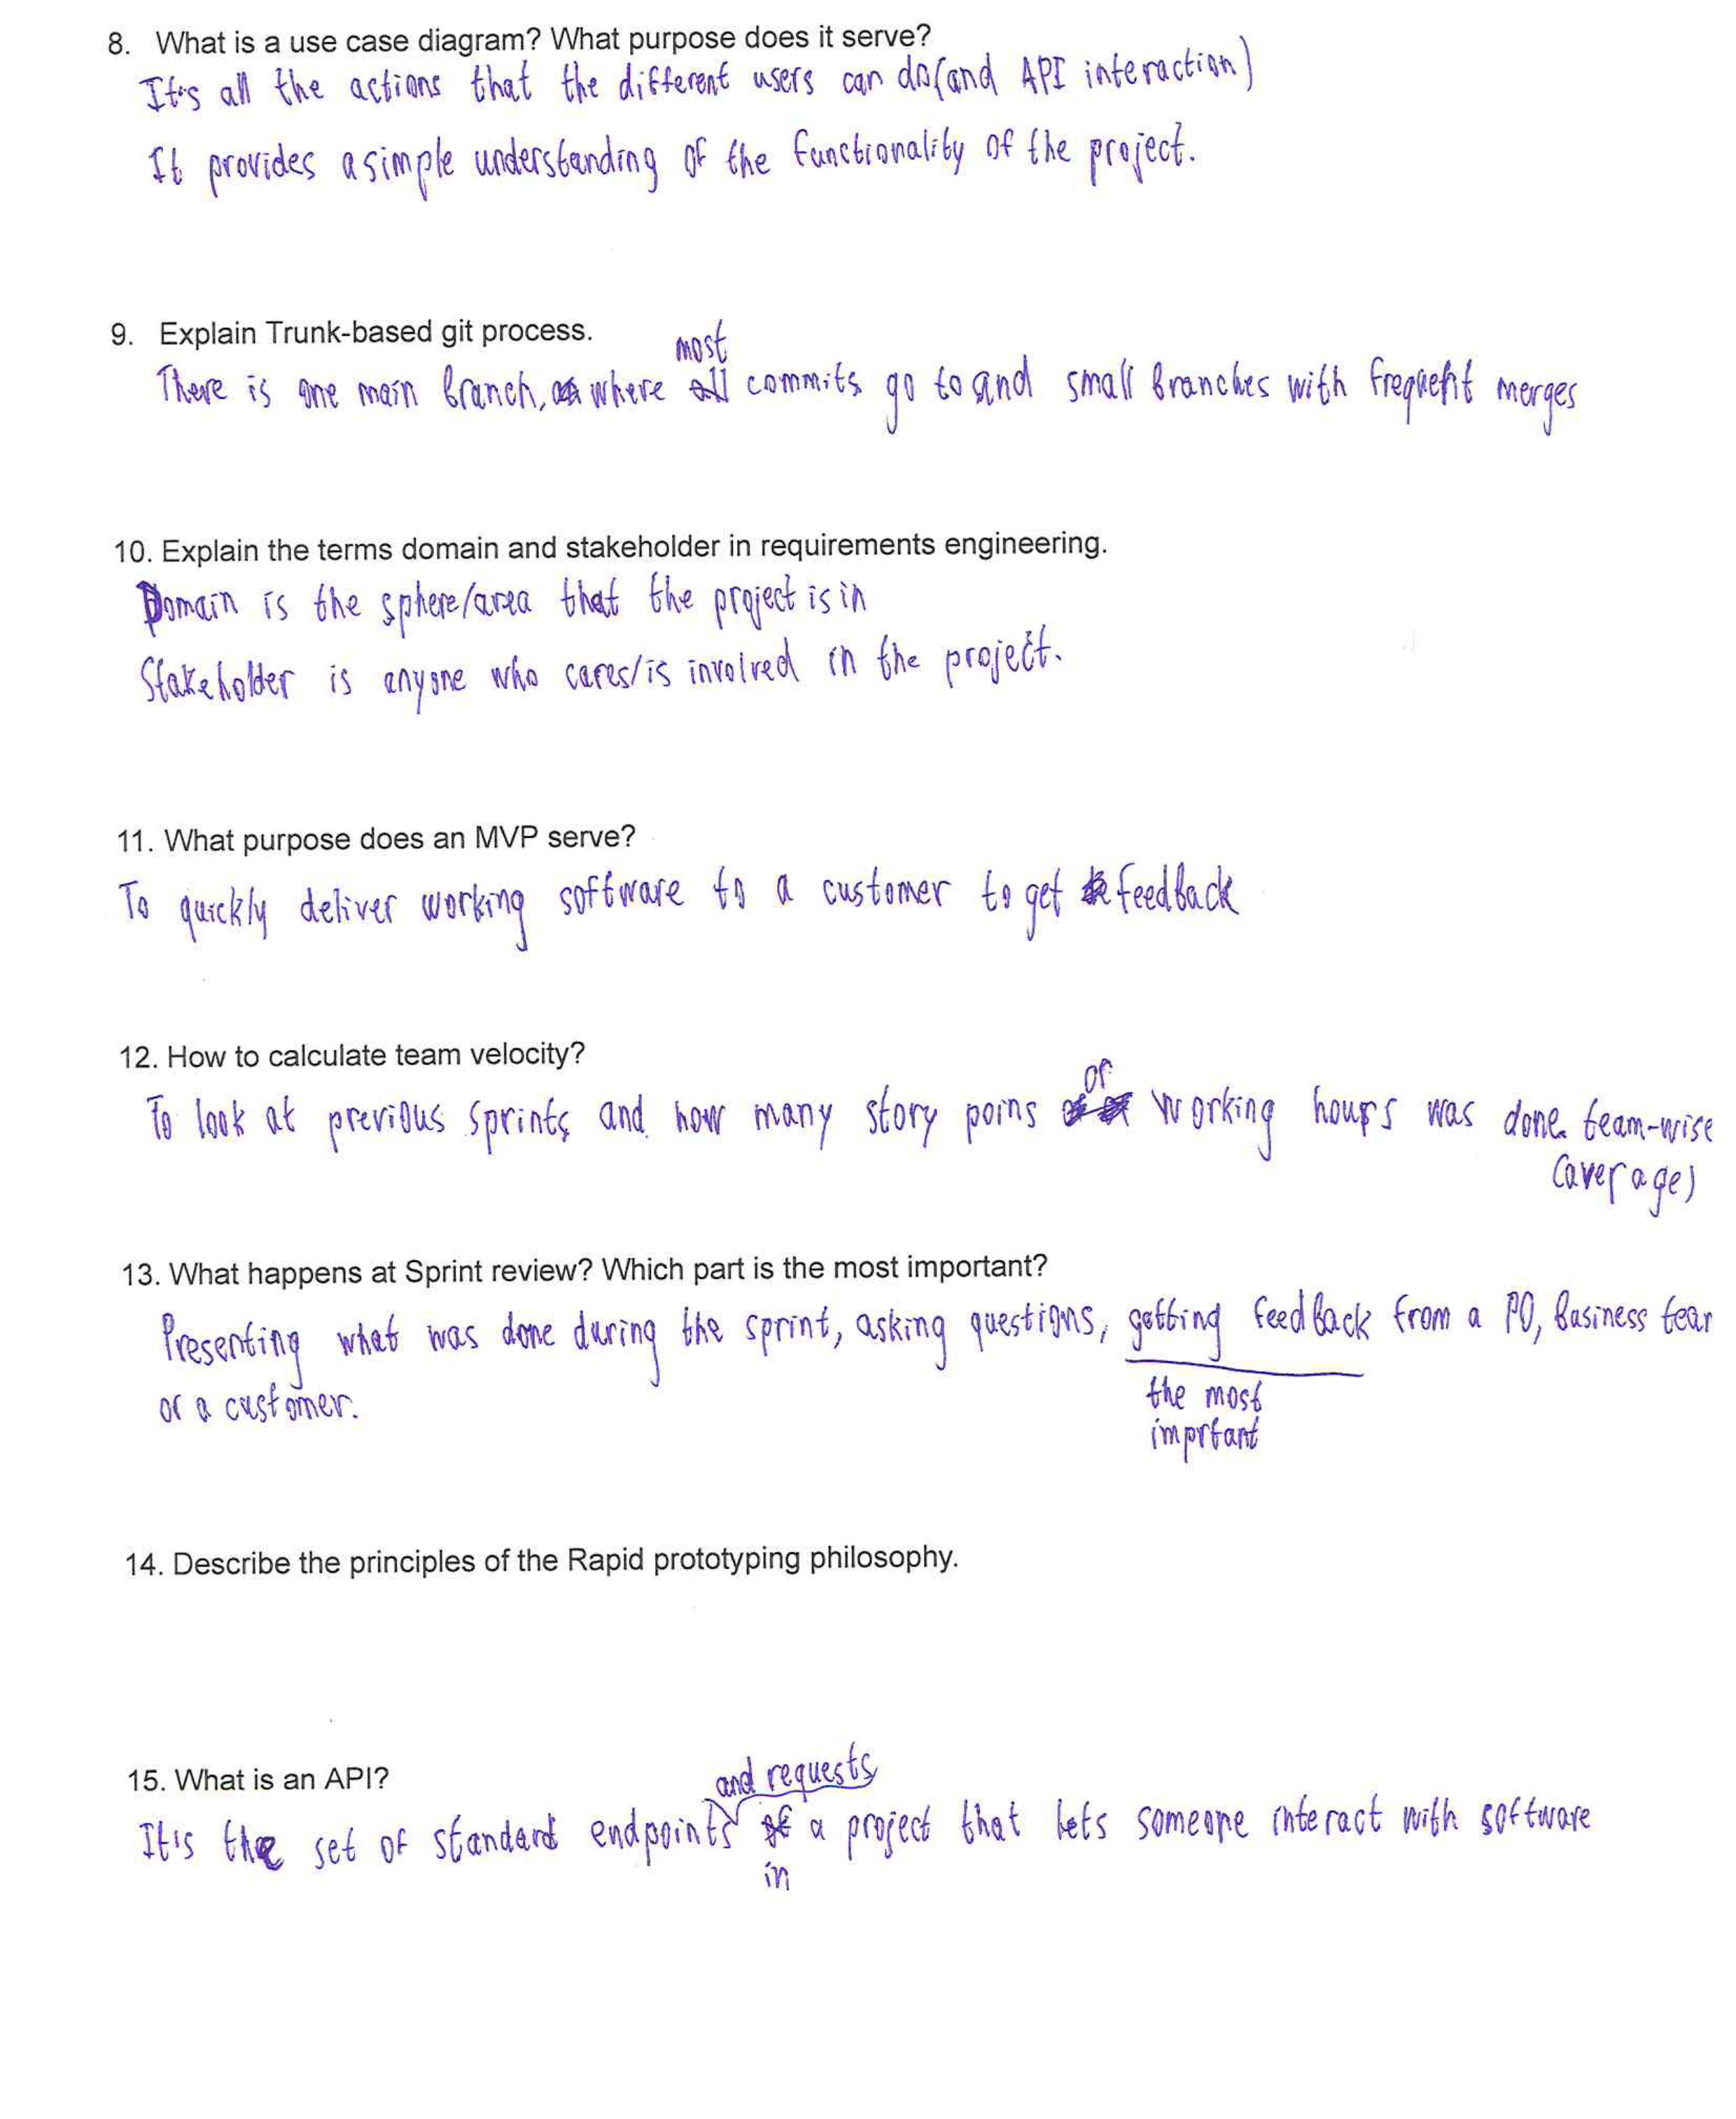 8. What is a use case diagram? What purpose does it serve?
It's all the actions that the different users can do (and API interaction)
It provides a simple understanding of the functionality of the project.
9. Explain Trunk-based git process.
most
There is one main branch, where all commits go to and small branches with frequent merges
10. Explain the terms domain and stakeholder in requirements engineering.
Domain is the sphere/area that the project is in
Stakeholder is anyone who cares/is involved in the project.
11. What purpose does an MVP serve?
To quickly deliver working software to a customer to get feedback
12. How to calculate team velocity?
or
To look at previous sprints and how many story poins working hours was done team-wise
(average)
13. What happens at Sprint review? Which part is the most important?
Presenting what was done during the sprint, asking questions, getting feedback from a PO, business tear
or a customer.
the most
imprtant
14. Describe the principles of the Rapid prototyping philosophy.
15. What is an API?
and requests
It's the set of standard endpoints of a project that lets someone interact with software
in